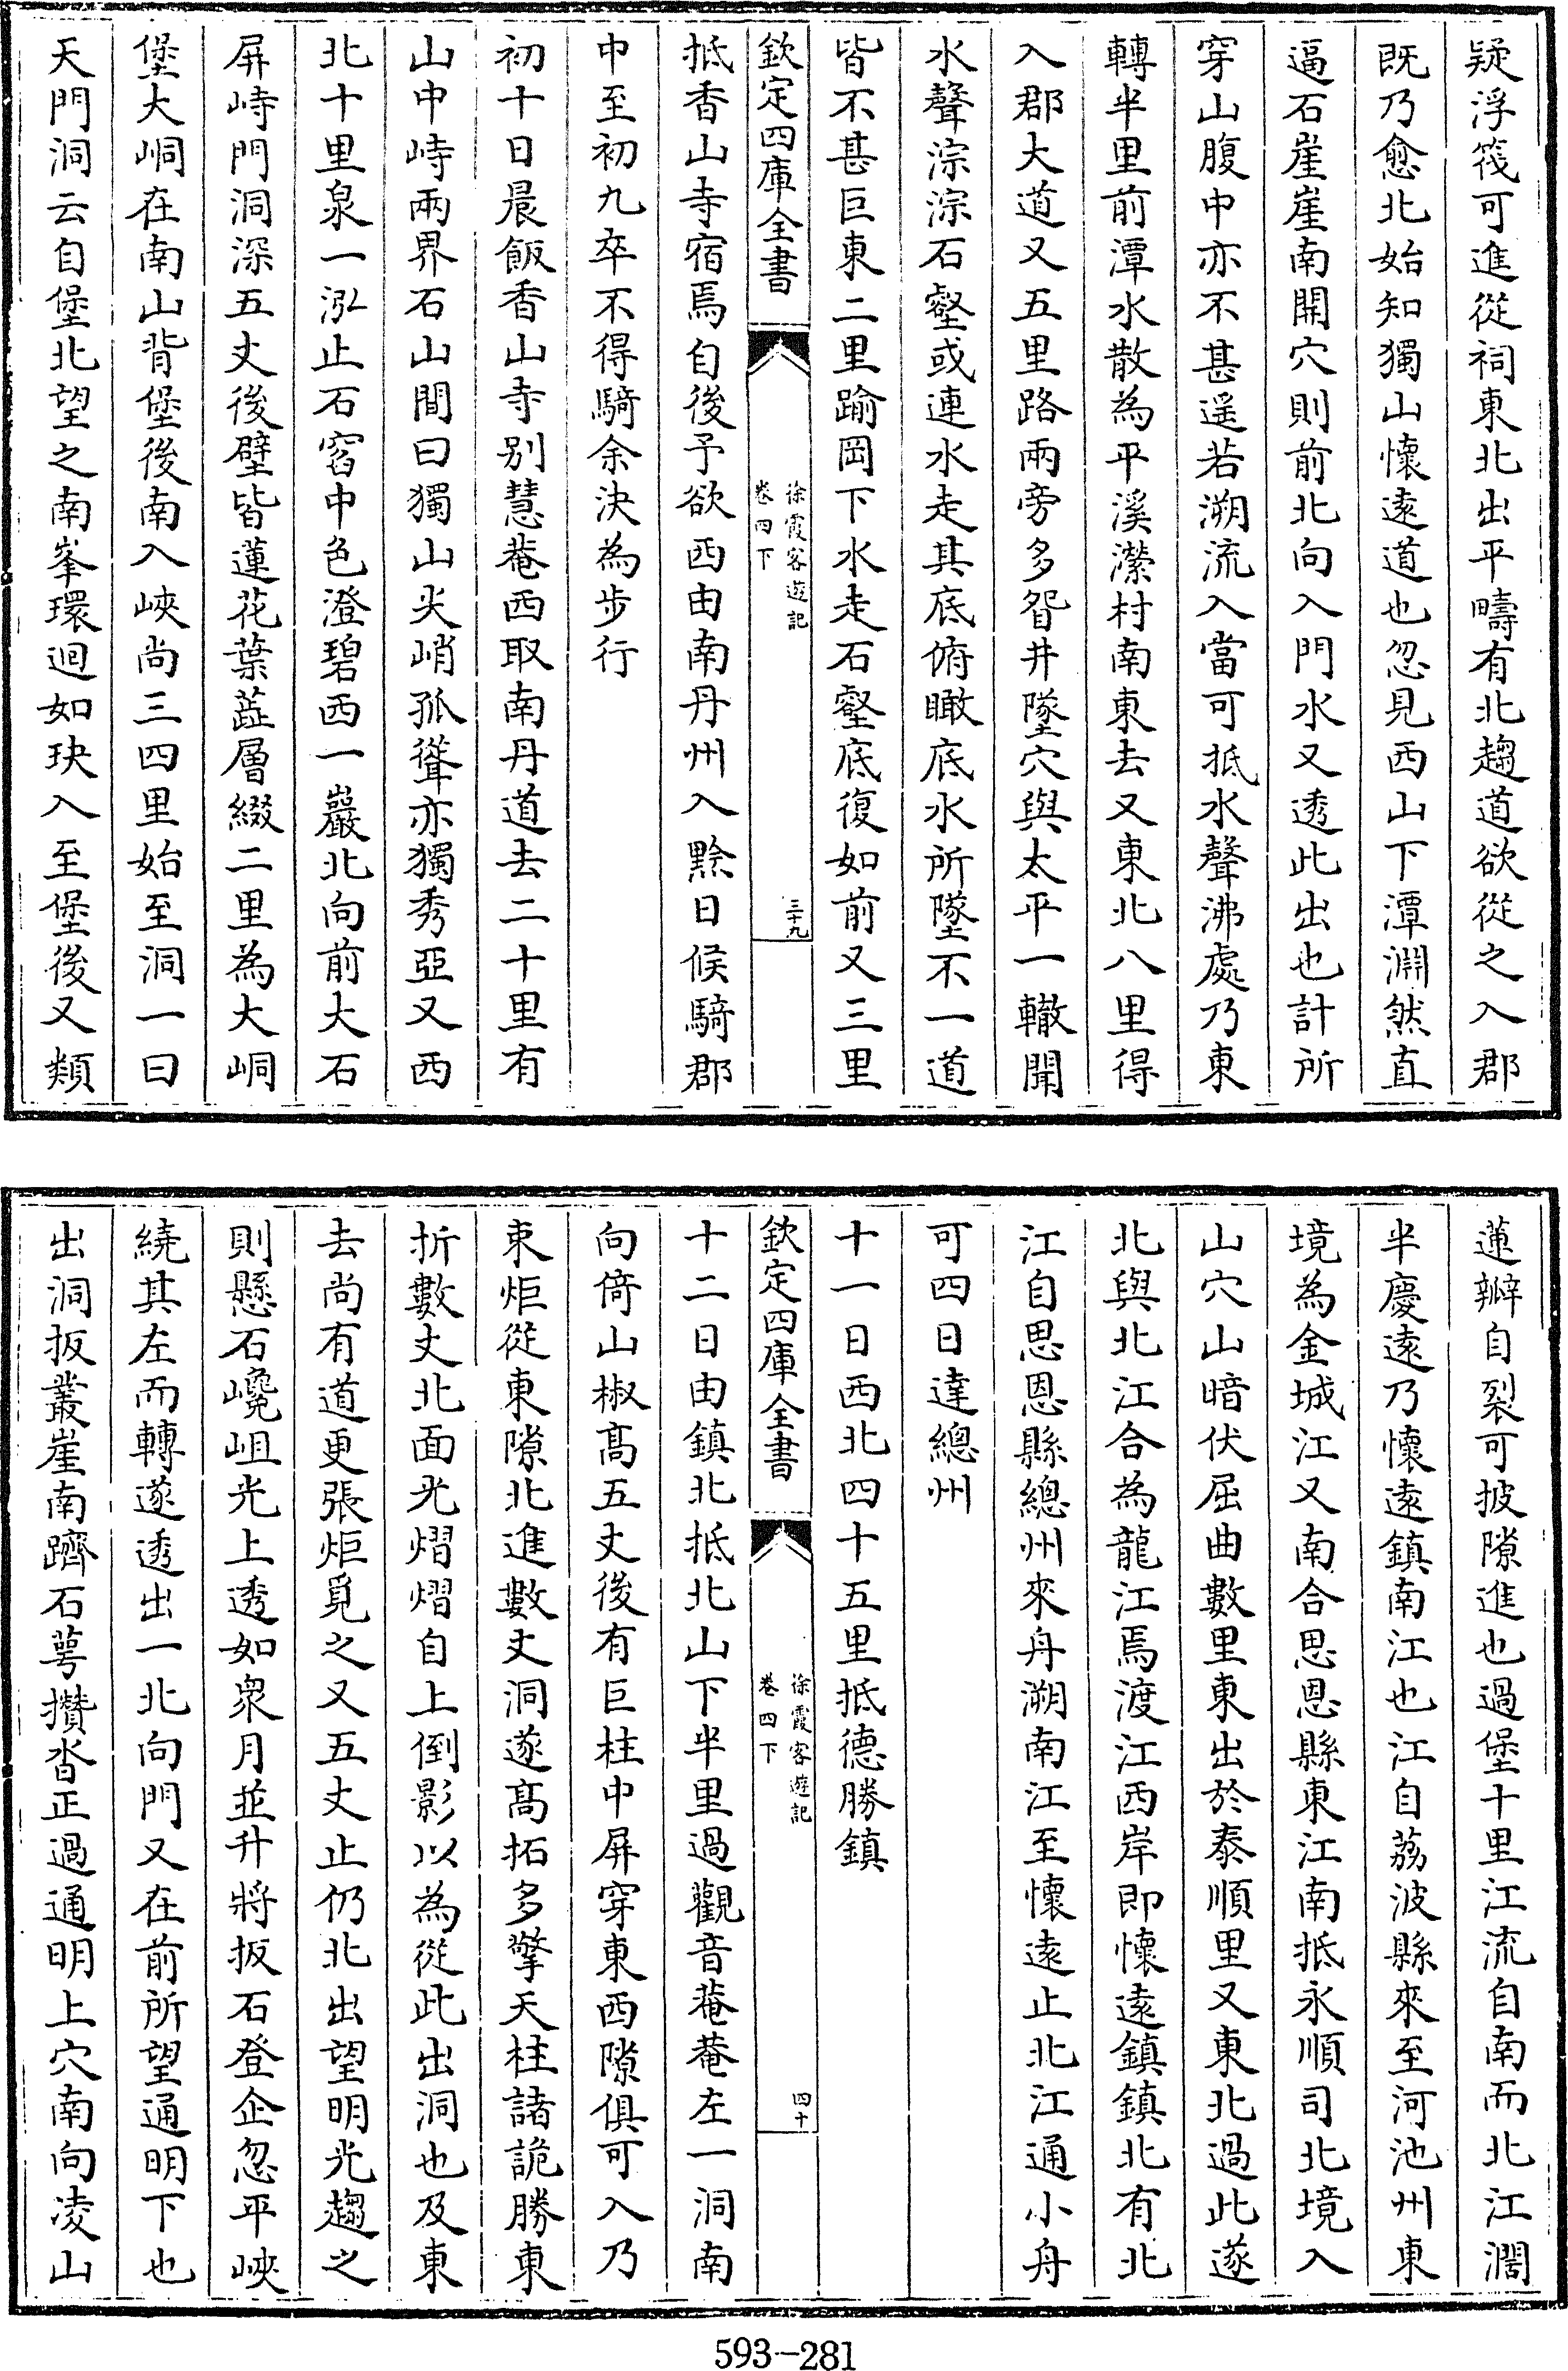 疑浮筏可進從祠東北出平疇有北趨道欲從之入郡
既乃愈北始知獨山懷遠道也忽見西山下潭淵然直
逼石崖崖南開穴則前北向入門水又透此出也計所
穿山腹中亦不甚遥若溯流入當可抵水聲沸處乃東
轉半里前潭水散為平溪瀠村南東去又東北八里得
入郡大道又五里路兩旁多眢井墜穴與太平一轍聞
水聲淙淙石壑或連水走其底俯瞰底水所墜不一道
皆不甚巨東二里踰岡下水走石壑底復如前又三里
欽定四庫全書
徐霞客遊記
卷四下
三十九
抵香山寺宿焉自後予欲西由南丹州入黔日候騎郡
中至初九卒不得騎余決為步行
初十日晨飯香山寺别慧菴西取南丹道去二十里有
山中峙兩界石山間曰獨山尖峭孤聳亦獨秀亞又西
北十里泉一泓止石窞中色澄碧西一巖北向前大石
屏峙門洞深五丈後壁皆蓮花葉蕋層綴二里為大峒
堡大峒在南山背堡後南入峽尚三四里始至洞一曰
天門洞云自堡北望之南峯環迴如玦入至堡後又類
蓮瓣自裂可披隙進也過堡十里江流自南而北江濶
半慶遠乃懷遠鎮南江也江自荔波縣來至河池州東
境為金城江又南合思恩縣東江南抵永順司北境入
山穴山暗伏屈曲數里東出於泰順里又東北過此遂
北與北江合為龍江焉渡江西岸即懷遠鎮鎮北有北
江自思恩縣總州來舟溯南江至懷遠止北江通小舟
可四日達總州
十一日西北四十五里抵德勝鎮
欽定四庫全書
徐霞客遊記
卷四下
四十
十二日由鎮北抵北山下半里過觀音菴菴左一洞南
向倚山椒高五丈後有巨柱中屏穿東西隙俱可入乃
束炬從東隙北進數丈洞遂高拓多擎天柱諸詭勝東
折數丈北面光熠熠自上倒影以為從此出洞也及東
去尚有道更張炬覓之又五丈止仍北出望明光趨之
則懸石巉岨光上透如衆月並升將扳石登企忽平峽
繞其左而轉遂透出一北向門又在前所望通明下也
出洞扳叢崖南躋石萼攢沓正過通明上穴南向凌山
593-281